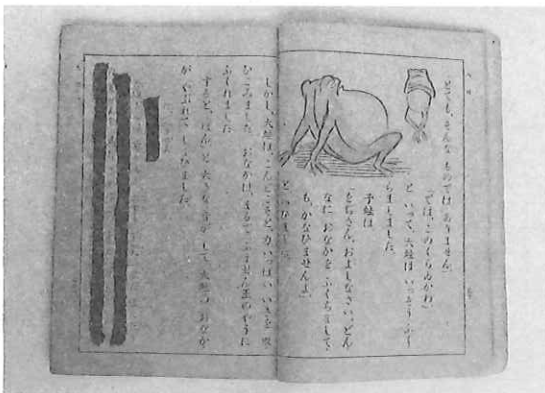 とても、そんな ものでは ありません。」
「では、このくらゐかね。」
と いって、大蛙は いっそう ふく
らましました。
子蛙は
「をぢさん、およしなさい。どん
なに おなかを ふくらまして
も、かなひませんよ。」
と いひました。
しかし、大蛙は、こんどこそと、力いっぱい いきを 吸
ひこみました。おなかは、まるで ふうせん玉のやうに
ふくれました。
すると、ぱんと 大きな 音がして、大蛙の おなか
が やぶれて しまひました。